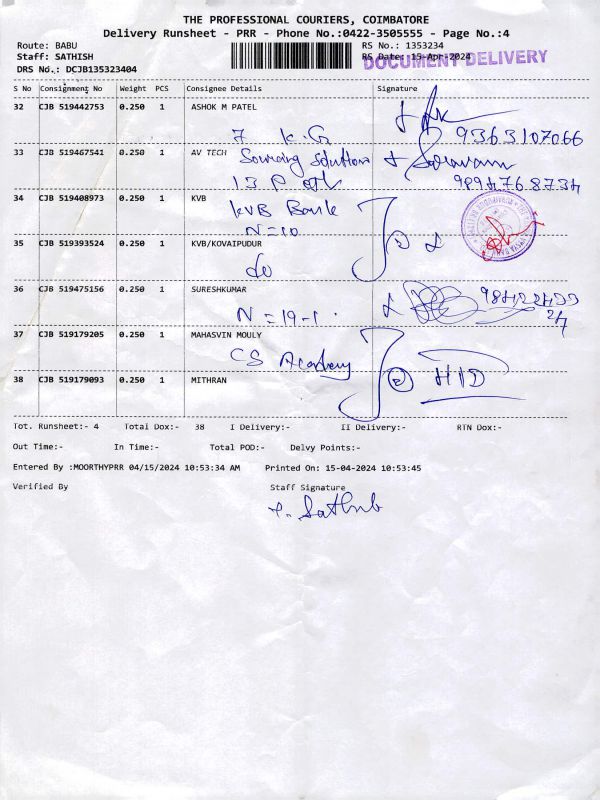 THE PROFESSIONAL COURIERS, COIMBATORE
Delivery Runsheet - PRR - Phone No.:0422-3505555 - Page No.:4
Route: BABU
RS No.: 1353234
Staff: SATHISH
RS Date: 15-Apr-2024
DOCUMENT DELIVERY
DRS No.: DCJB135323404
S No Consignment No Weight PCS Consignee Details Signature
32 CJB 519442753 0.250 1 ASHOK M PATEL
7 K.G 9363107066
33 CJB 519467541 0.250 1 AV TECH Sourcing Solutions
Saravanan
13 P
34 CJB 519408973 0.250 1 KVB
KVB Bank
N=10
35 CJB 519393524 0.250 1 KVB/KOVAIPUDUR
do
36 CJB 519475156 0.250 1 SURESHKUMAR
N = 19-1
37 CJB 519179205 0.250 1 MAHASVIN MOULY
CS Academy
38 CJB 519179093 0.250 1 MITHRAN
Tot. Runsheet:- 4 Total Dox:- 38 I Delivery:- II Delivery:- RTN Dox:-
Out Time:- In Time:- Total POD:- Delvy Points:-
Entered By :MOORTHYPRR 04/15/2024 10:53:34 AM Printed On: 15-04-2024 10:53:45
Verified By Staff Signature